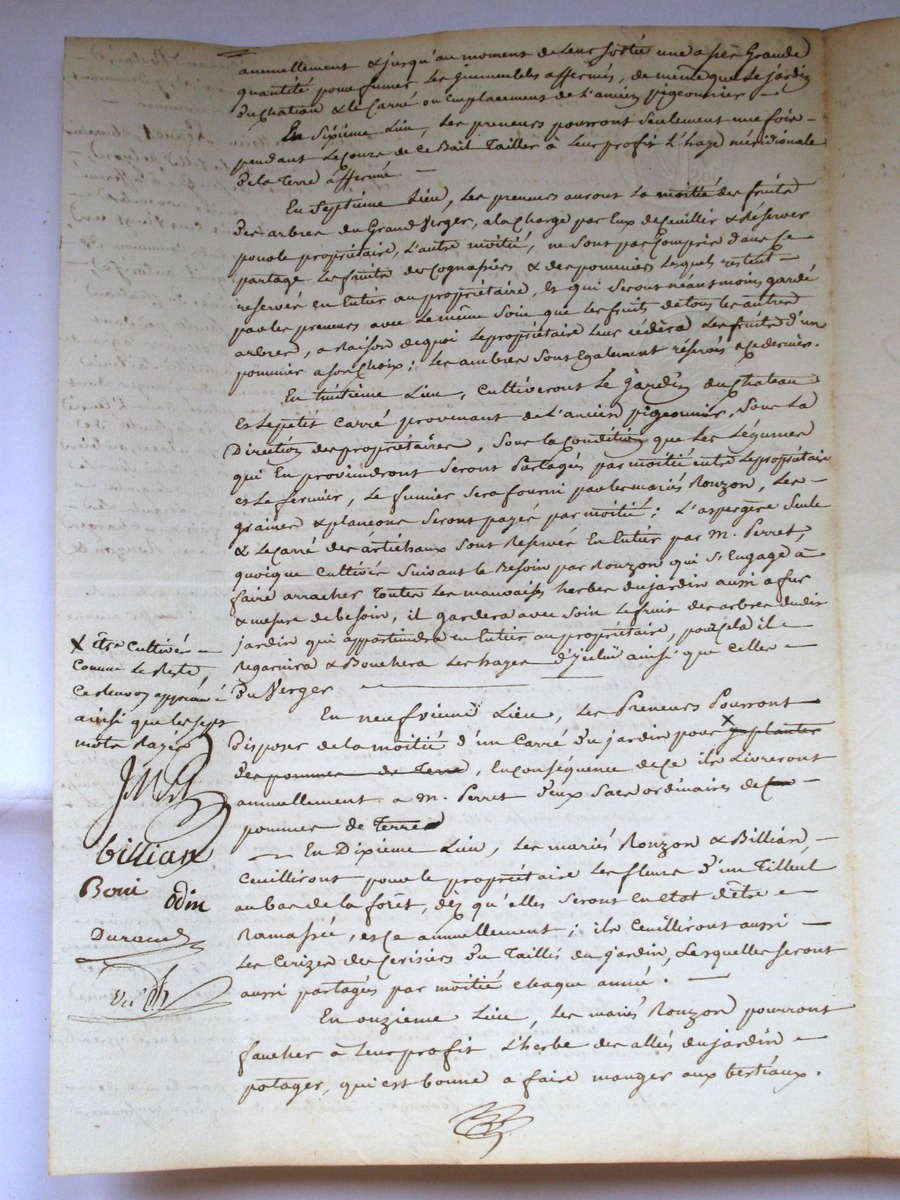 annuellement & jusqu'au moment de leur sortie une assez Grande
quantité pour fumer les immeubles affermés, de meme que le jardin
du chateau & le Carré ou Emplacement de l'ancien pigeonnier
En Sixième Lieu, les preneurs pourront seulement une fois
pendant le Cours de ce Bail Tailler à leur profit l'haye méridionale
de la Terre affermé
En Septième Lieu, les preneurs auront la moitié des fruits
des arbres du Grand Verger, a la Charge par Eux de Ceuillir & Réserver
pour le propriétaire, l'autre moitié, ne sont pas Compris dans ce
partage les fruits des Cognassiers & des pommiers lesquels restent
reservés en Entier au propriétaire, et qui seront néantmoins gardé
par les preneurs avec le même Soin que les fruits de tous les autres
arbres, a Raison de quoi le propriétaire leur cédéra les fruits d'un
pommier a son Choix; les ambres sont Egalement réservés a ce dernier.
En huitième Lieu, Cultiveront le jardin du Chateau
et le petit Carré provenant de l'ancien pigeonnier, Sous la
Direction des propriétaires, Sous la Condition que les Légumes
qui En proviendront Seront Partagés par moitié entre le propriétaire
et le fermier, le fumier sera fourni par les mariés Rouzon, les
graines & plancons seront payés par moitié; l'aspergère Seule
& le Carré des artichaux sont Reservés En Entier par M. Perret,
quoique Cultivés Suivant le Besoin par Rouzon qui S'Engage à
faire arracher toutes les mauvaises herbes du jardin aussi a fur
& mesure de besoin, il gardera avec soin le fruit des arbres dudit
jardin qui appartiendra en Entier au propriétaire, pour cela il
Regarnira & Bouchera les hayes d'jcelui ainsi que Celles
du Verger
En neufvieme Lieu, les Preneurs Pourront
Disposer de la moitié d'un Carré du jardin pour x y planter
des pommes de Terre, En conséquence de Ce ils Livreront
annuellement a M. Perret deux Sacs ordinaires de
pommes de Terre
En Dixieme Lieu, les mariés Rouzon & Billian
Ceuilliront pour le propriétaire les fleurs d'un Tilleul
au bas de la forêt, dès qu'elles seront En etat d'être
Ramassée, et Ce annuellement; ils Ceuilliront aussi
les Cerizes des Cerisiers du Taillis du jardin, Lesquelles seront
aussi partagés par moitié Chaque année.
En onzieme Lieu, les mariés Rouzon pourront
faucher à leur profit l'herbe des allées du jardin
potager, qui est bonne a faire manger aux bestiaux.
x être Cultivé
Comme le Reste,
Ce Renvoi approuvé
ainsi que les sept
mots Rayés
billian
Boni
odin
Durand